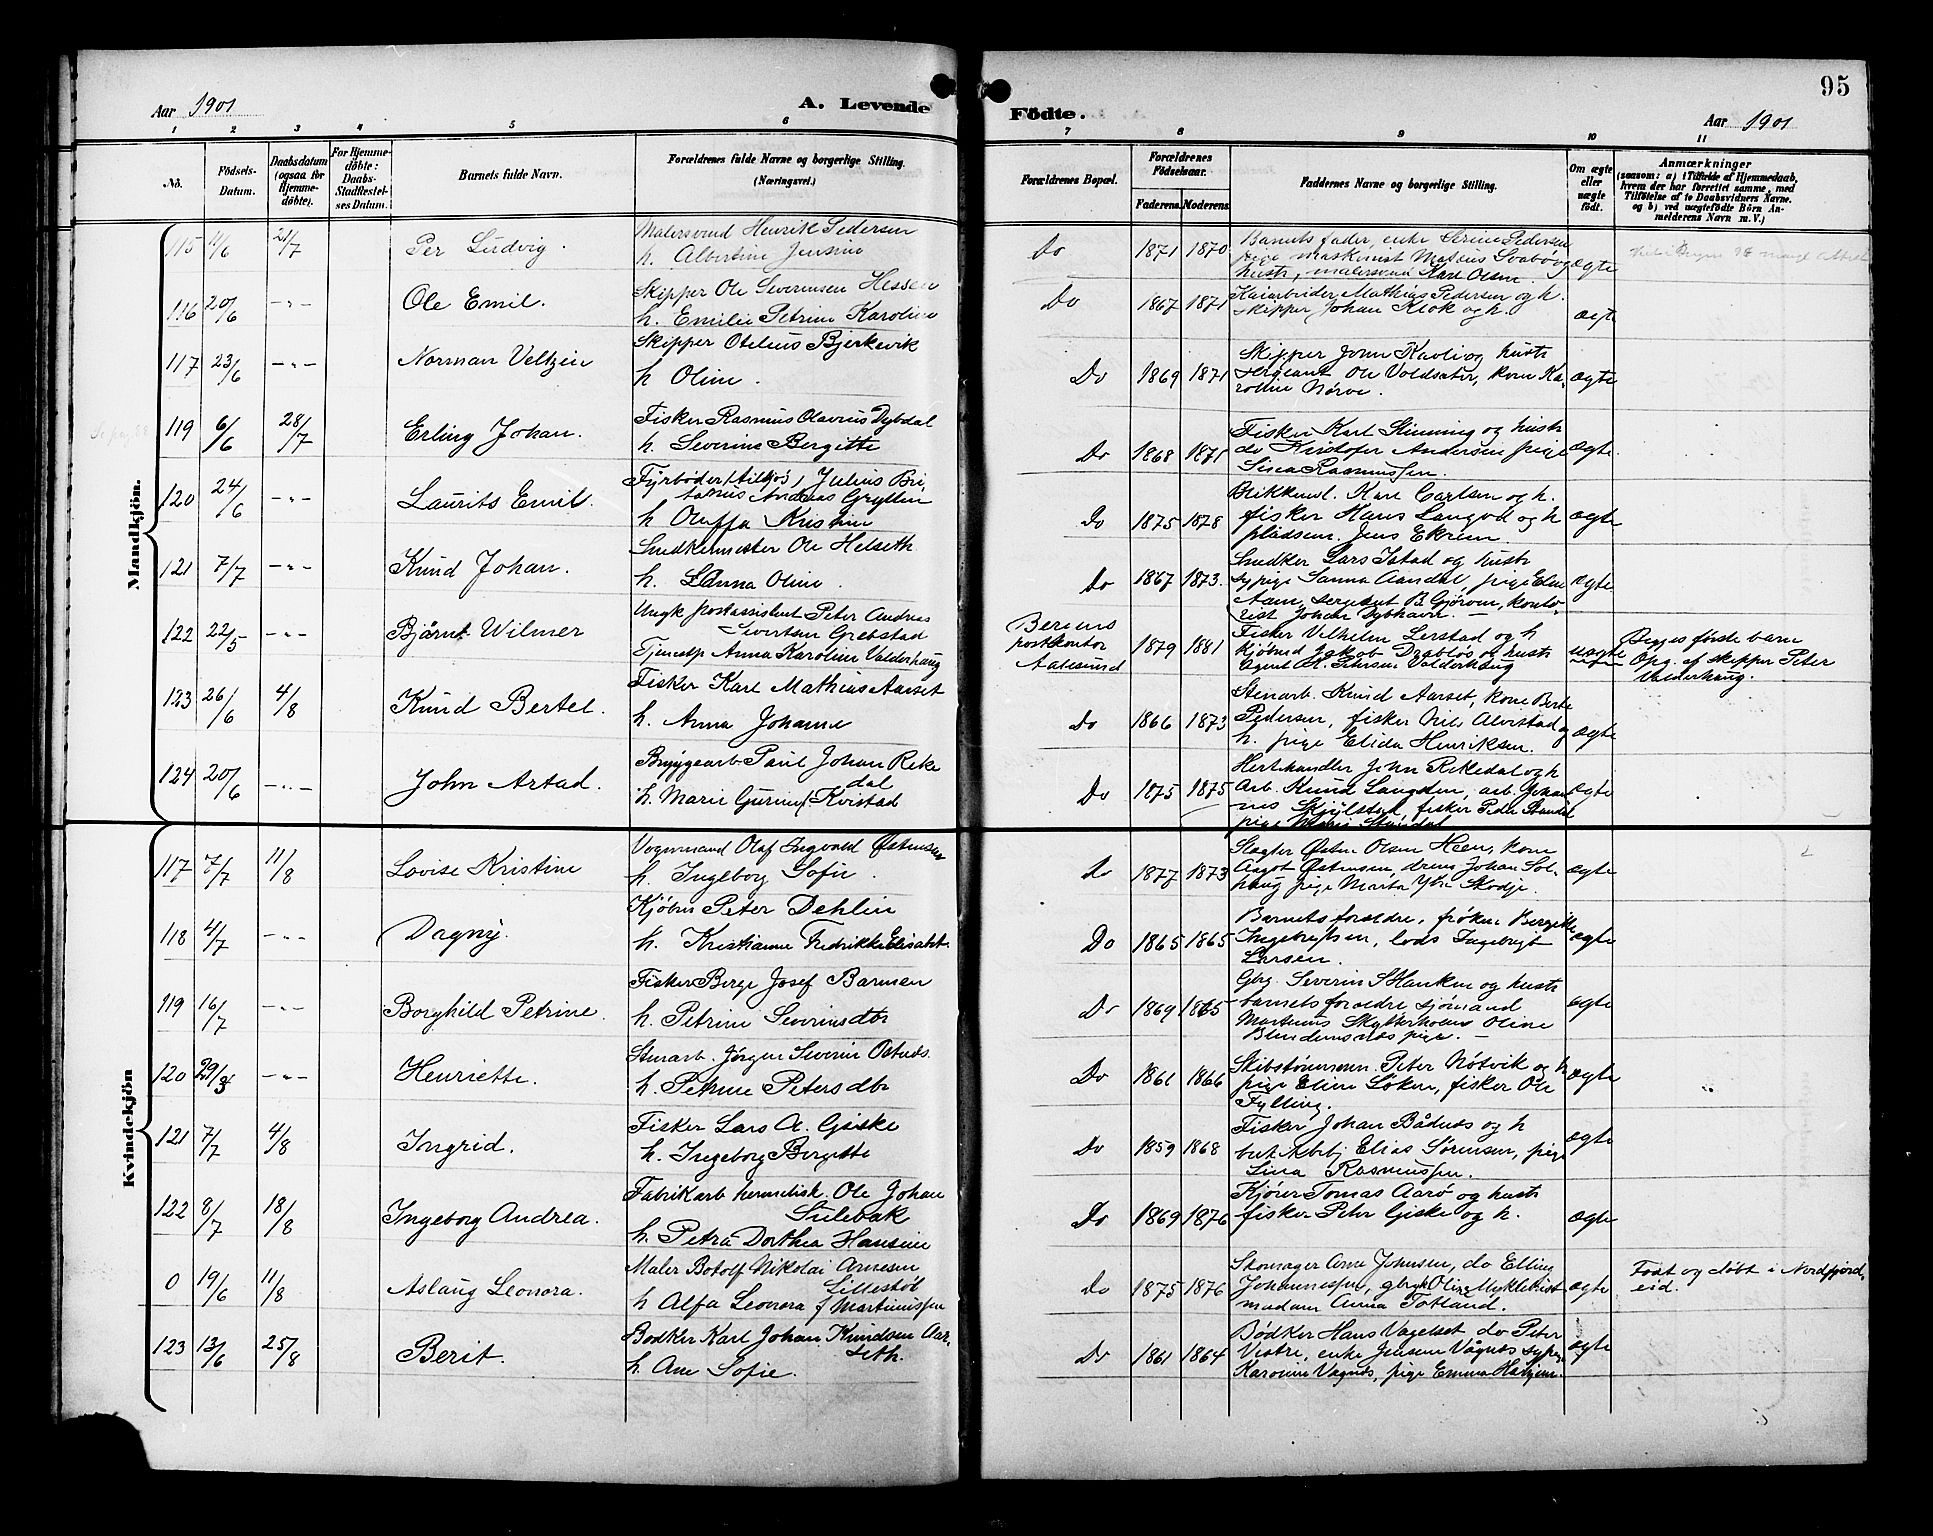 95
Aar 1901 A. Levende Födte. Aar 1901
1 2 3 4 5 6 7 8 9 10 11
No. Födsels-Datum. Daabsdatum (ogsaa for Hjemme-döbte). For Hjemme-döbte: Daabs-Stadfæstel-ses Datum. Barnets fulde Navn. Forældrenes fulde Navne og borgerlige Stilling. (Næringsvei.) Forældrenes Bopæl. Forældrenes Födselsaar. Faderens. Moderens. Faddernes Navne og borgerlige Stilling. Om ægte eller uægte födt. Anmærkninger (saasom: a) i Tilfælde af Hjemmedaab, hvem der har forrettet samme, med Tilföielse af to Daabsvidners Navne. og b) ved uægtefödte Börn An-melderens Navn m. V.)
Mandkjön.
115 4/6 21/7 Per Ludvig. Malersvend Henrik Pedersen
h. Albertine Jensine
Do 1871 1870 Barnets fader, enke Serine Pedersen
maskinist Mateus Svabø og
hustr, malersvend Karl Olsen. ægte
116 20/6 -"- Ole Emil. Skipper Ole Severinsen Hessen
h. Emilie Petrine Karoline
Do 1867 1871 Kaiarbeider Mathias Pedersen og h.
skipper Johan Klok og h. ægte
117 23/6 -"- Norman Veltzin Skipper Otelius Bjerkevik
h Oline.
Do 1869 1871 Skipper John Kavli og hustr
sergeant Ole Voldsater, kone Ka-
roline Nørve. ægte
119 6/6 28/7 Erling Johan. Fisker Rasmus Olavius Dybdal
h. Severine Bergitte
Do 1868 1871 Fisker Karl Skinning og hustr
do Kristofer Andersen pige
Sina Rasmussen. ægte.
120 24/6 -"- Laurits Emil. Fyrbøder (tilsjøs) Julius Bri
tanus Andreas Gryttin
h Oluffa Kristine
Do 1875 1878 Blikkensl. Karl Carlsen og h.
fisker Hans Langvd og h
pladsm. Jens Ekrem. ægte
121 7/7 -"- Knud Johan. Snedkermester Ole Helseth
h. Anna Oline.
Do 1867 1873. Snedker Lars Istad og hustr
sypige Sanna Aandal, pige Eline
Aam, sergeant B. Gjørven, konto-
rist Johan Dybhavn. ægte
122 22/5 -"- Bjarne Wilmer Ungk postassistent Peter Andreas
Sivertsen Grebstad
Tjenestp Anna Karoline Valderhaug
Bergens
postkontor
Aalesund
1879 1881 Fisker Vilhelm Lerstad og h
Kjøbmd Jakob Drabløs og hustr
Agent K. Larsen Valderhaug uægte
Begges første barn
Opg. af skipper Peter
Valderhaug.
123 26/6 4/8 Knud Bertel. Fisker Karl Mathias Aarset
h. Anna Johanne
Do 1866 1873 Stenarb. Knud Aarset, kone Berte
Pedersen, fisker Nils Alvestad og
h. pige Elida Henriksen. ægte
124 20/6 -"- John Artad. Bryggearb Paul Johan Reke
dal
h. Marie Gurine f. Kvistad
Do 1875 1875 Hertzhandler John Rekedal og h
Arb. Knud Langseden, arb. Johan
nes Skjylstad, fisker Peder Standal
pige Marie Standal ægte
Kvindekjön
117 7/7 11/8 Lovise Kristine Vognmand Olaf Ingvald Østensen
h. Ingeborg Sofie.
Do 1877 1873 Slagter Østen Olsen Heen, kone
Aagot Østensen, dreng Johan Sol-
haug pige Marta Ytre Skodje. ægte
118 4/7 -"- Dagny. Kjøbm Peter Dehlin
h. Kristianne Fredrikke Elisabet
Do 1865 1865 Barnets foreldre, frøken Bergitte
Ingebrigtsen, lods Ingebrigt
Larsen. ægte
119 16/7 -"- Borghild Petrine. Fisker Berge Josef Barmen
h. Petrine Severinsdtr
Do 1869 1865 Gbg. Severin S Hanken og hustr
barnets foreldre sjømand
Martinus Skytterholm Oline
Blindemsnes pige. ægte
120 29/3 -"- Henriette. Stenarb. Jørgen Severin Ostnes.
h. Petrine Petersdtr
Do 1861 1866 Skibstømmerm. Peter Nøtvik og h
pige Eline Løken, fisker Ole
Fylling. ægte
121 7/7 4/8 Ingrid. Fisker Lars A. Giske
h. Ingeborg Bergitte
Do 1859 1868 Fisker Johan Bådnes og h
best. Arbeij Elias Sørensen, pige
Sina Rasmussen. ægte
122 8/7 18/8 Ingeborg Andrea. Fabrikarb hermetisk. Ole Johan
Sulebak
h. Petra Dorthea Hansine
Do 1869 1876 Kjører Tomas Aarø og hustr
fisker Peter Giske og h. ægte
0 19/6 11/8 Aslaug Leonora. Maler Botolf Nikolai Arnesen
Lillestøl
h Alfa Leonora f Martinussen
Do 1875 1876 Skomager Arne Johnsen, do Elling
Johannessen, gbrpk Oline Myklebust
madam Anna Totland. ægte
Født og døbt i Nordfjord-
eid.
123 13/6 25/8 Berit. Bødker Karl Johan Knudsen Aar-
seth.
h. Ane Sofie.
Do 1861 1864 Bødker Hans Vagelset do Peter
Vestre, enke Jensen Vågnes sypige
Karoline Vagnes, pige Emma Hatlem. ægte